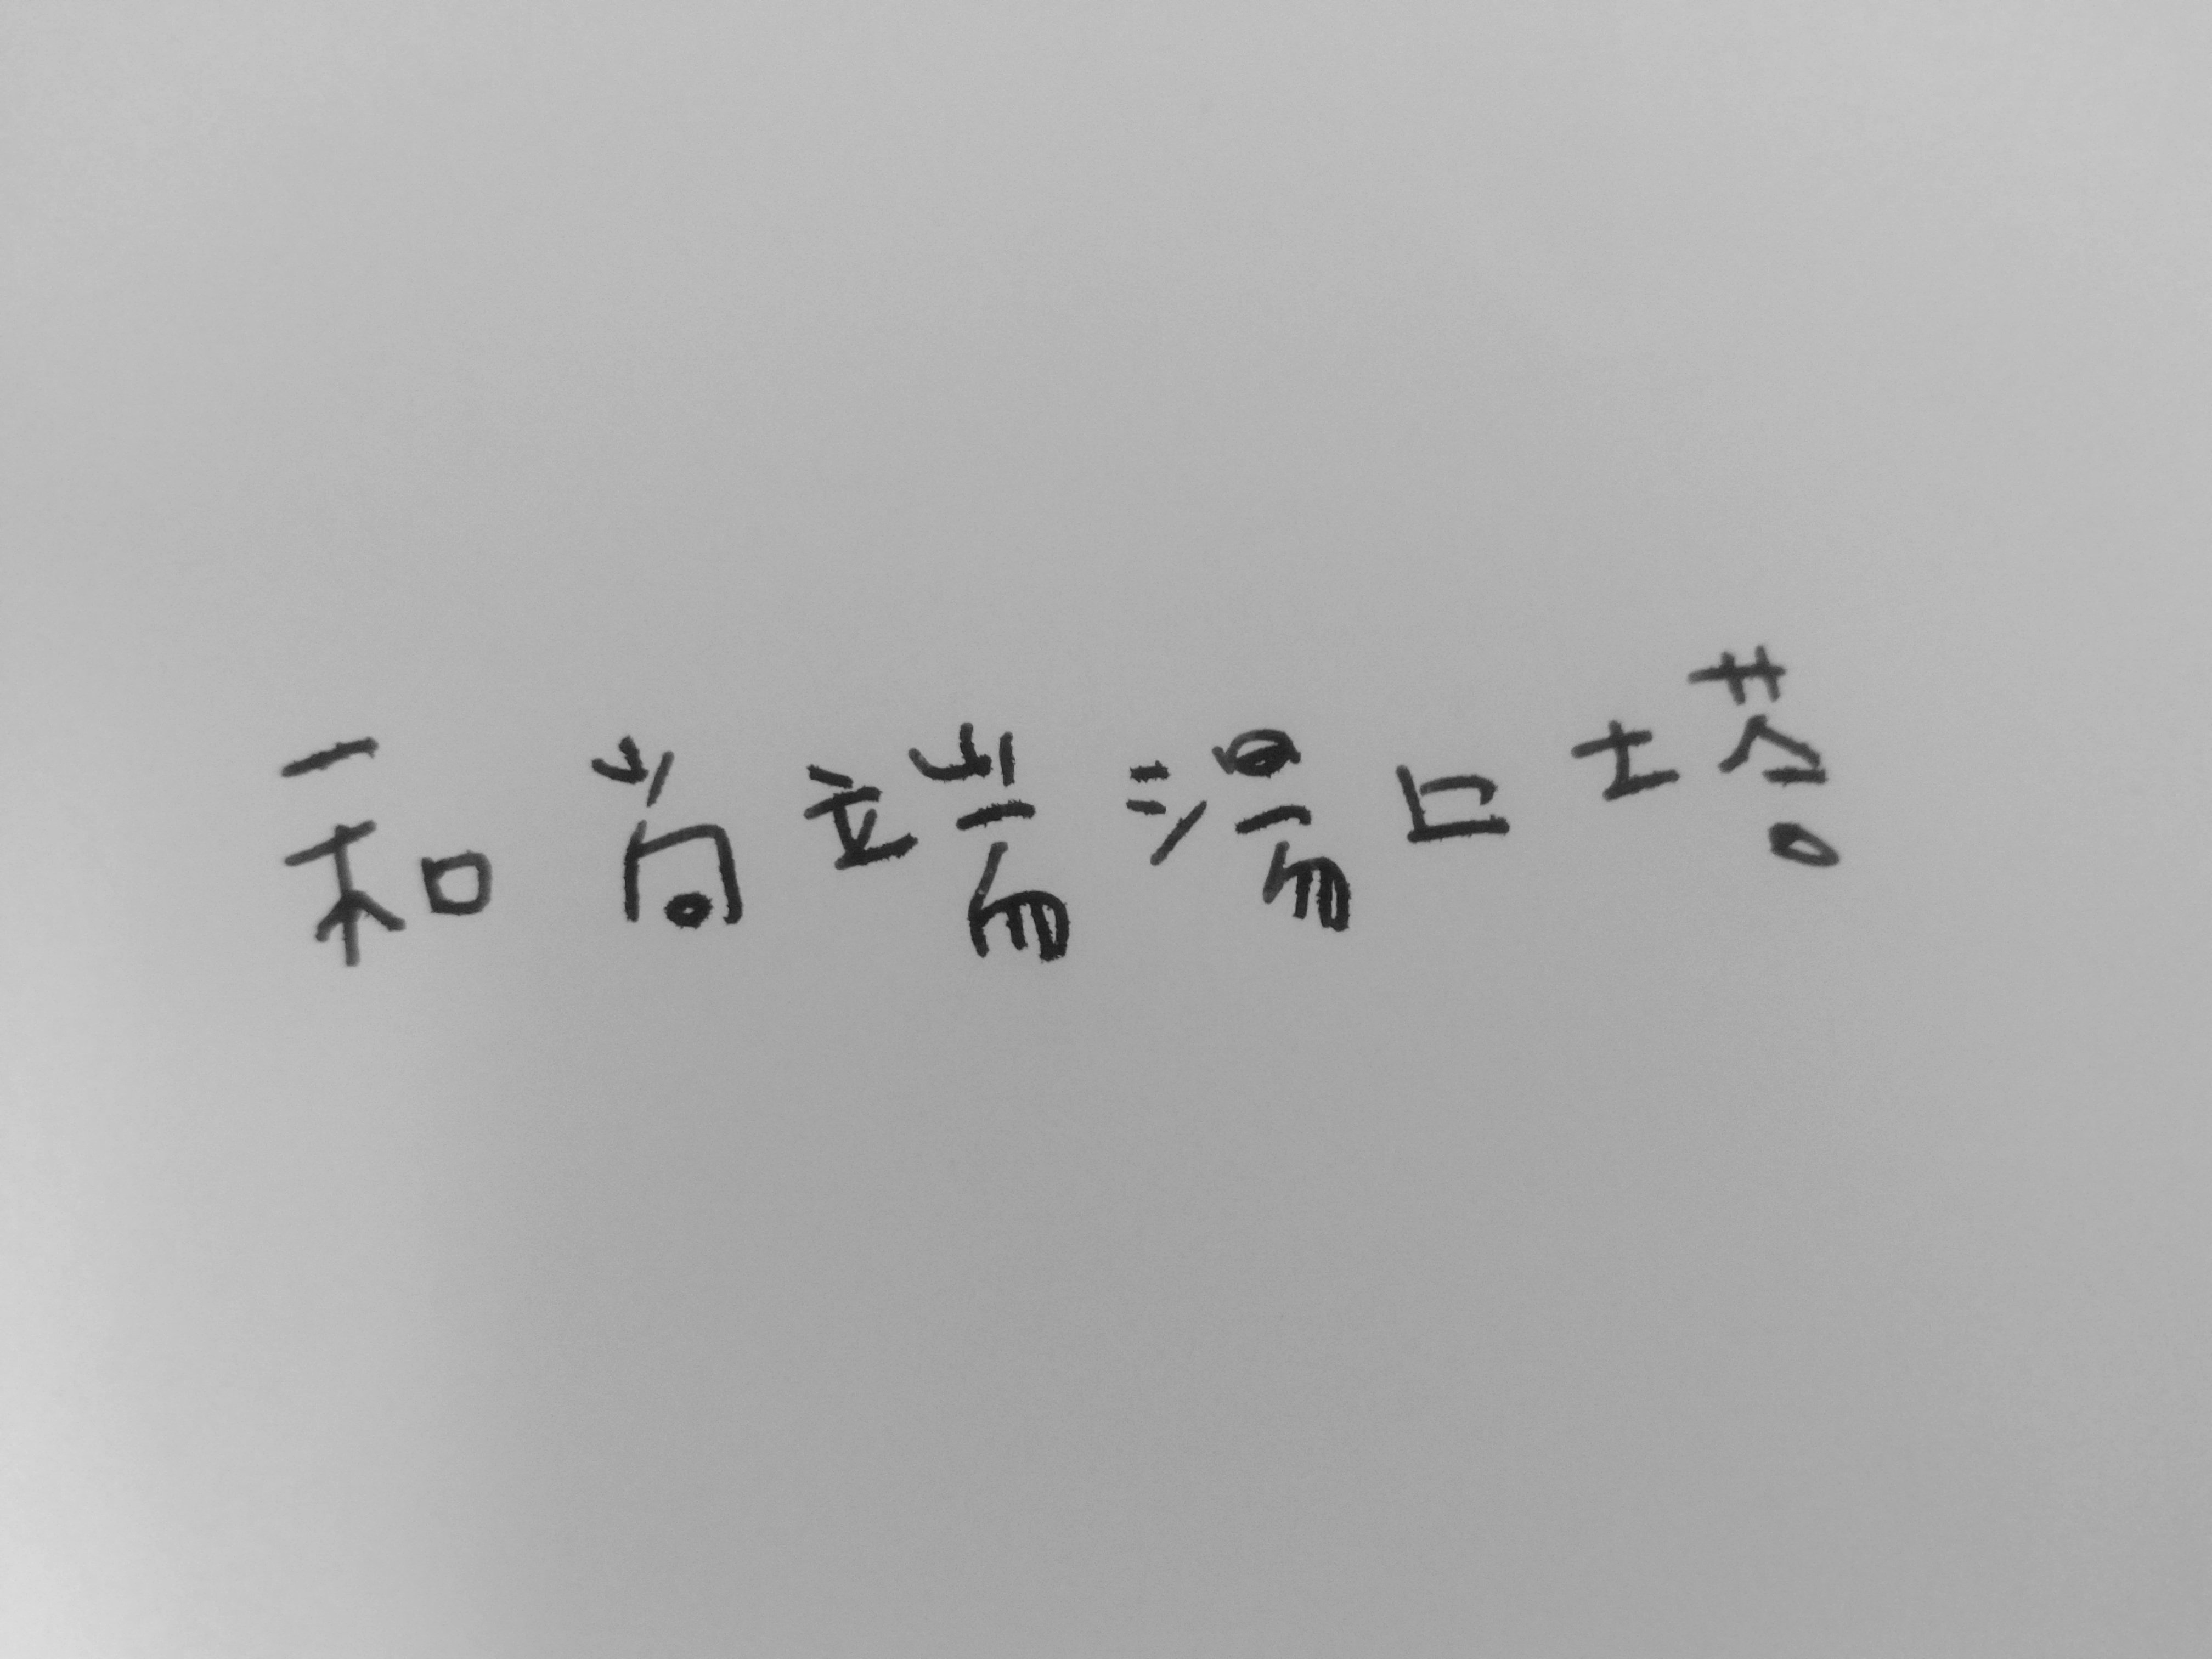 和尚端湯上塔